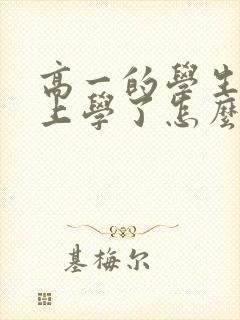 高一的學生
上學了怎麼
基梅尔